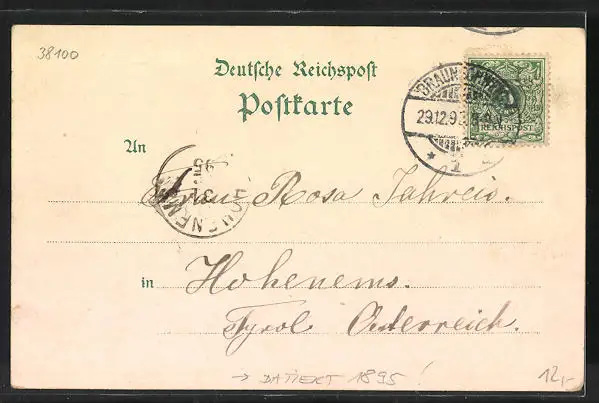 38100
Deutsche Reichspost
Postkarte
REICHSPOST
29.12.9
An
95
31
HOHENEMS
Frau Rosa Jahreis.
in
Hohenems.
Tyrol Österreich.
→ DATIERT 1895!
12,-